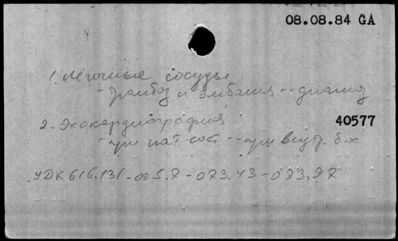 08.08.84 GA
1. Легочные сосуды
- тромбоз и эмболия -- диагноз
2. Эхокардиография 40577
- при пат. сост. -- при внутр. б-х
УДК 616.131-005.7-073.43-073.97